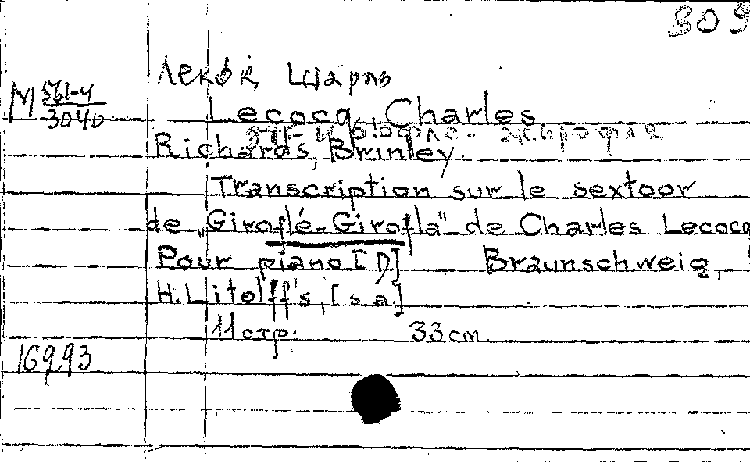 909
Лекок, Шарль
М 561-4
3040
Lecocq, Charles
Жирофле-Жирофля
Richards, Brinley.
Transcription sur le sextoor
de „Giroflé-Girofla" de Charles Lecocq
Pour piano [1) Braunschweig,
H. Litolff's, [s.a.]
11 стр. 33 cm.
16993